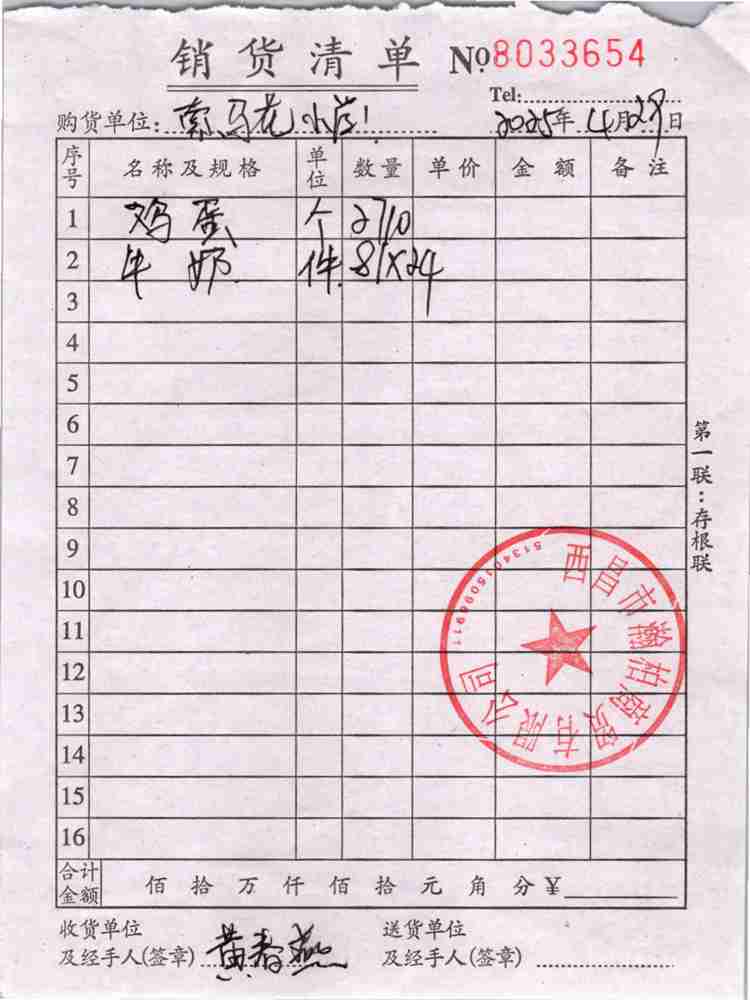 销货清单 №8033654
Tel:
购货单位: 索马花小学 2025年4月29日
序号 名称及规格 单位 数量 单价 金额 备注
1 鸡蛋 个 2710
2 牛奶 件 81X24
3
4
5
6
7
8
9
10
11
12
13
14
15
16
第一联:存根联
西昌市瀚柏商贸有限公司
5134015096911
合计金额 佰拾万仟佰拾元角分¥
收货单位及经手人(签章) 黄春燕
送货单位及经手人(签章)